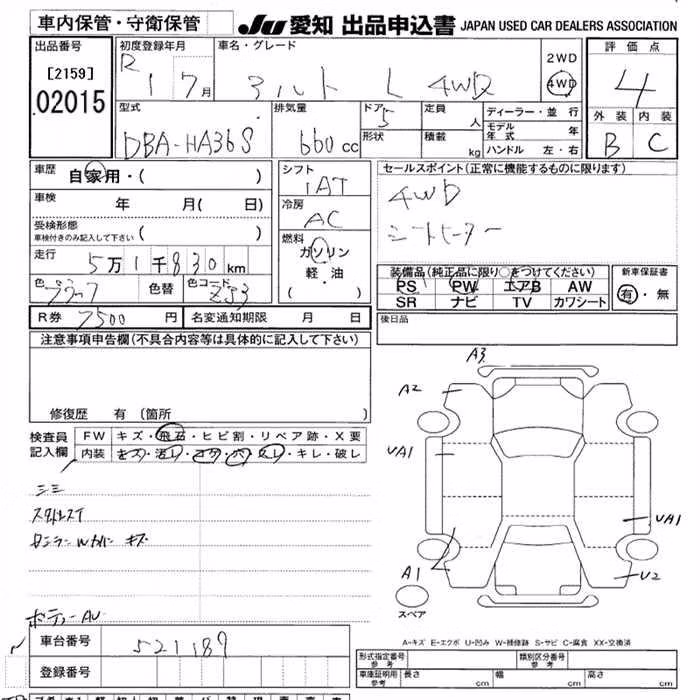 車内保管・守衛保管
JU 愛知 出品申込書 JAPAN USED CAR DEALERS ASSOCIATION
出品番号
[2159]
02015
初度登録年月
R 1 7月
車名・グレード
アルト L 4WD
2WD
4WD
評価点
4
外装 内装
B C
型式
DBA-HA36S
排気量
660 cc
ドア
5
形状
定員
人
積載
kg
ディーラー・並行
モデル年式 年
ハンドル 左・右
車歴
自家用・( )
車検
年 月( 日)
受検形態
車検付きのみ記入して下さい ( )
走行
5万1千830km
色 色替 色コード
ZJ3
シフト
IAT
冷房
AC
燃料
ガソリン
軽・油
・( )
セールスポイント(正常に機能するものに限ります)
4WD
シートヒーター
装備品(純正品に限り○をつけてください)
PS PW エアB AW
SR ナビ TV カワシート
新車保証書
有・無
R券 7500 円 名変通知期限 月 日
後日品
注意事項申告欄(不具合内容等は具体的に記入して下さい)
修復歴 有 (箇所 )
検査員
記入欄
FW キズ・飛石・ヒビ割・リペア跡・X要
内装 キズ・汚レ・コゲ・穴・スレ・キレ・破レ
スタッドレスT
ボディーAU
A3
A2
UA1
UA1
A1
U2
スペア
A-キズ E-エクボ U-凹み W-補修跡 S-サビ C-腐食 XX-交換済
車台番号 521189
登録番号
型式指定番号
参考
類別区分番号
参考
車庫証明用
参考
長さ cm 幅 cm 高さ cm